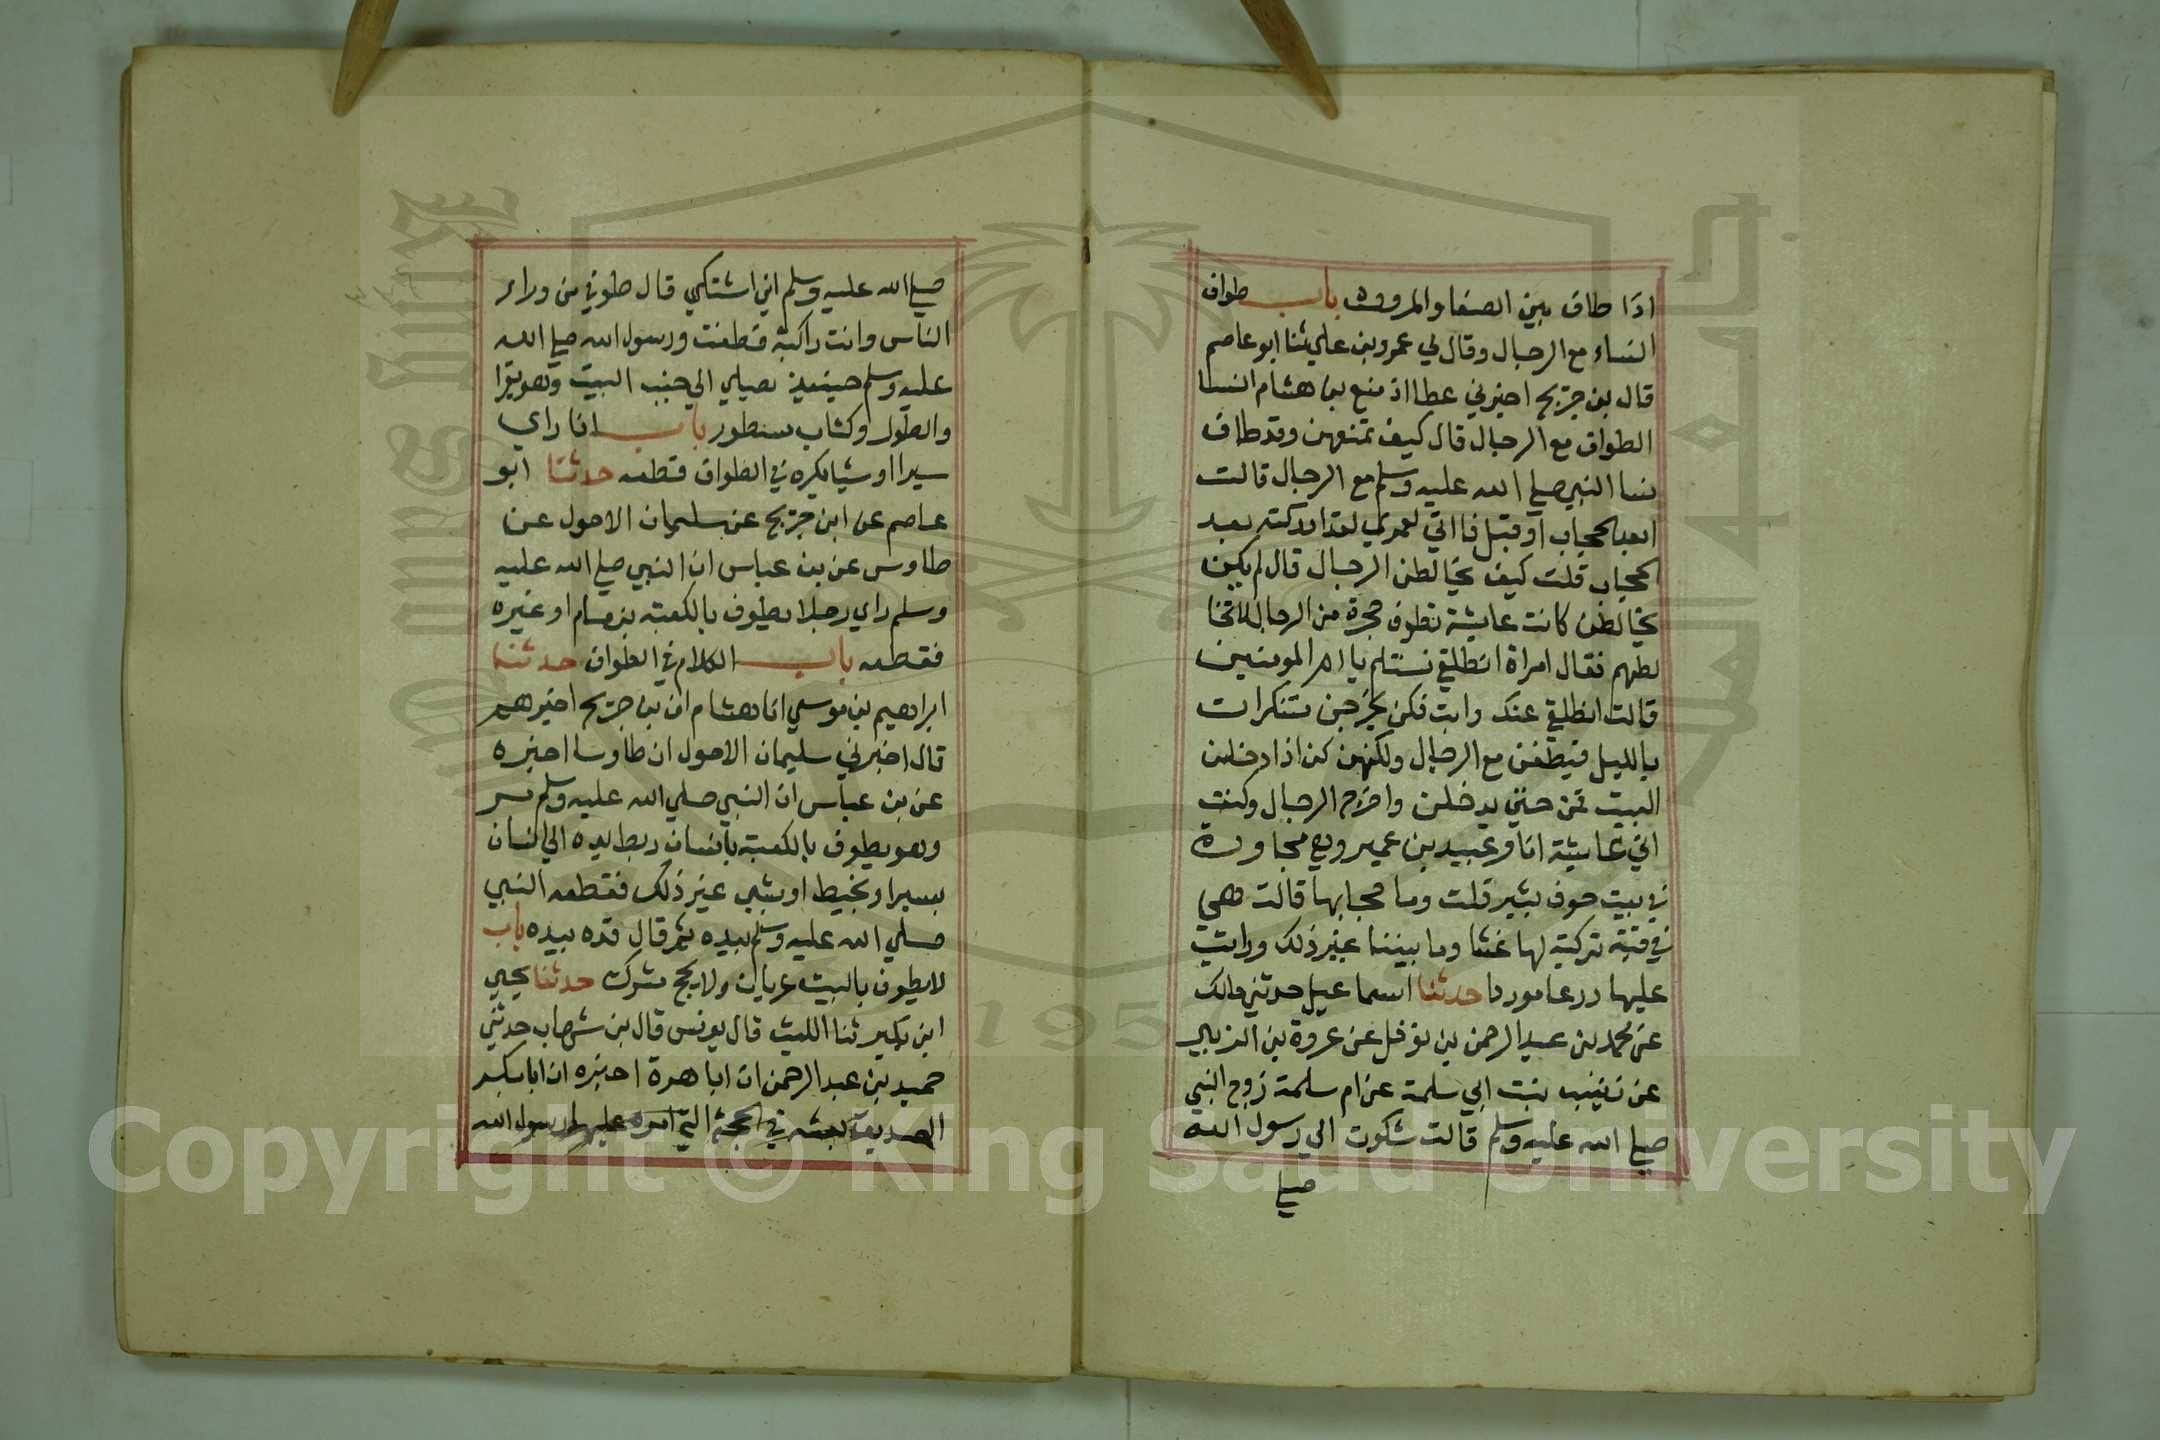 اذا طاف بين الصفا والمروه باب طواف
النساء مع الرجال وقال لي عمرو بن علي ثنا ابو عاصم
قال بن جريج اخبرني عطا اذ منع بن هشام النسا
الطواف مع الرجال قال كيف تمنعهن وقد طاف
نسا النبي صلي الله عليه وسلم مع الرجال قالت
ابعد الحجاب او قبل قال اي لعمري لقد ادركته بعد
الحجاب قلت كيف يخالطن الرجال قال لم يكن
يخالطن كانت عايشة تطوف حجرة من الرجال لا تخا
لطهم فقال امراة انطلقي نستلم يا ام المومنين
قالت انطلقي عنك وابت فكن يخرجن متنكرات
بالليل فيطفن مع الرجال ولكنهن كن اذا دخلن
البيت قمن حتي يدخلن واخرج الرجال وكنت
اتي عايشة انا وعبيد بن عمير وهي مجاورة
في بيت جوف بثير قلت وما حجابها قالت هي
في قبة تركية لها غشا وما بيننا غير ذلك ورايت
عليها درعا موردا حدثنا اسماعيل حدثني مالك
عن محمد بن عبد الرحمن بن نوفل عن عروة بن الزبير
عن زينب بنت ابي سلمة عن ام سلمة زوج النبي
صلي الله عليه وسلم قالت شكوت الي رسول الله
صلي
صلي الله عليه وسلم اني اشتكي قال طوفي من وراء
الناس وانت راكبة فطفت ورسول الله صلي الله
عليه وسلم حينيذ يصلي الي جنب البيت وهو يقرا
والطور وكتاب مسطور باب اذا راي
سيرا او شيا يكره في الطواف قطعه حدثنا ابو
عاصم عن ابن جريج عن سليمان الاحول عن
طاوس عن بن عباس ان النبي صلي الله عليه
وسلم راي رجلا يطوف بالكعبة بزمام او غيره
فقطعه باب الكلام في الطواف حدثنا
ابراهيم بن موسي انا هشام ان بن جريج اخبرهم
قال اخبرني سليمان الاحول ان طاوسا اخبره
عن بن عباس ان النبي صلي الله عليه وسلم مر
وهو يطوف بالكعبة بانسان ربط يده الي انسان
بسير او بخيط او بشي غير ذلك فقطعه النبي
صلي الله عليه وسلم بيده ثم قال قده بيده باب
لا يطوف بالبيت عريان ولا يحج مشرك حدثنا يحيي
ابن بكير ثنا الليث قال يونس قال بن شهاب حدثني
حميد بن عبد الرحمن ان ابا هرة اخبره ان ابا بكر
الصديق بعثه في الحجة التي امره عليها رسول الله
Copyright © King Saud University
King Saud University
1957